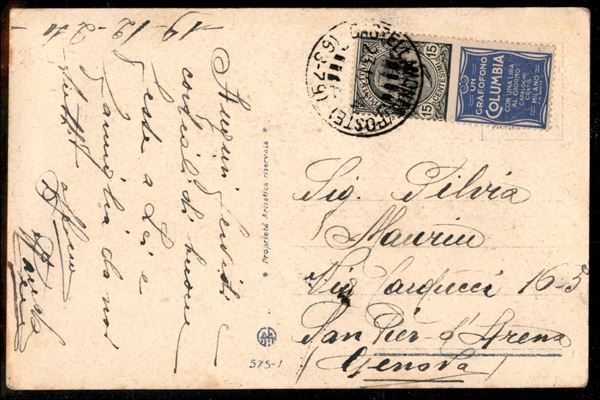 19-12-24
Auguri fervidi e
cordiali di buone
feste a Lei e
famiglia da noi
tutti
* Proprietà Artistica riservata *
575-1
(POSTE)
15
15
UN
GRAFOFONO
COLUMBIA
CON UN'ATURA
AL GIORNO
CATALOGHI
GRATIS
MILANO
Sig. Silvia
Maurin
Via Carducci 16-5
San Pier d'Arena
(Genova)